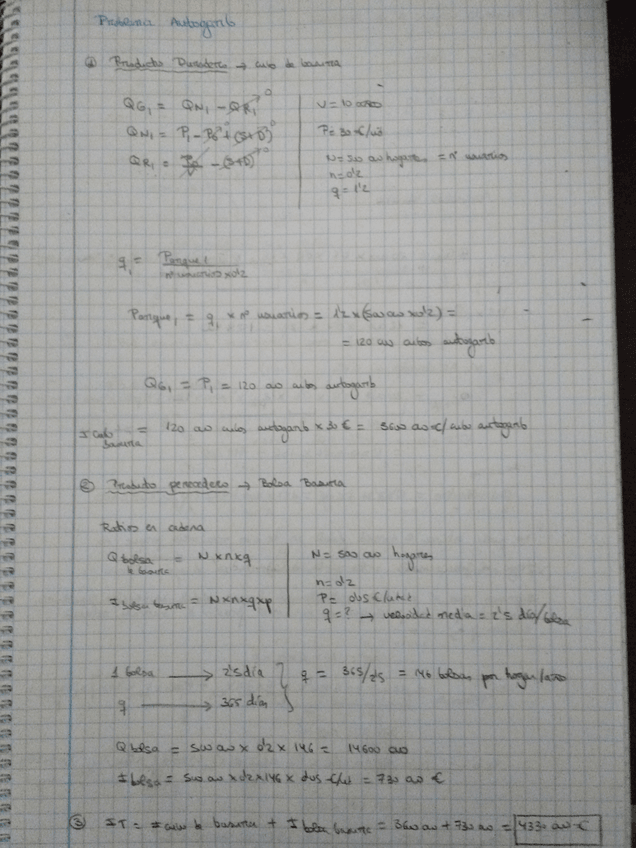 Problema Autogarb
① Producto Duradero → cubo de basura
QG₁ = QN₁ - QR₁ → 0
V = 10 años
QN₁ = P₁ - P₀ + (S+D)
P = 30 €/ud
QR₁ = - (S+D) → 0
N = 500 000 hogares = nº usuarios
n = 0'2
q = 1'2
q₁ = Parque 1 / nº usuarios x 0'2
Parque₁ = q₁ x nº usuarios = 1'2 x (500 000 x 0'2) =
= 120 000 cubos autogarb
QG₁ = P₁ = 120 000 cubos autogarb
I cubo basura = 120 000 cubos autogarb x 30 € = 3600 000 €/cubo autogarb
② Producto perecedero → Bolsa Basura
Ratios en cadena
Q bolsa de basura = N x n x q
N = 500 000 hogares
n = 0'2
I bolsa basura = N x n x q x p
P = 0'05 €/unid
q = ? → velocidad media = 2'5 día/bolsa
1 bolsa → 2'5 día
q → 365 días
q = 365/2'5 = 146 bolsas por hogar/año
Q bolsa = 500 000 x 0'2 x 146 = 14600 000
I bolsa = 500 000 x 0'2 x 146 x 0'05 €/ud = 730 000 €
③ IT = I cubo de basura + I bolsa basura = 3600 000 + 730 000 = 4330 000 €